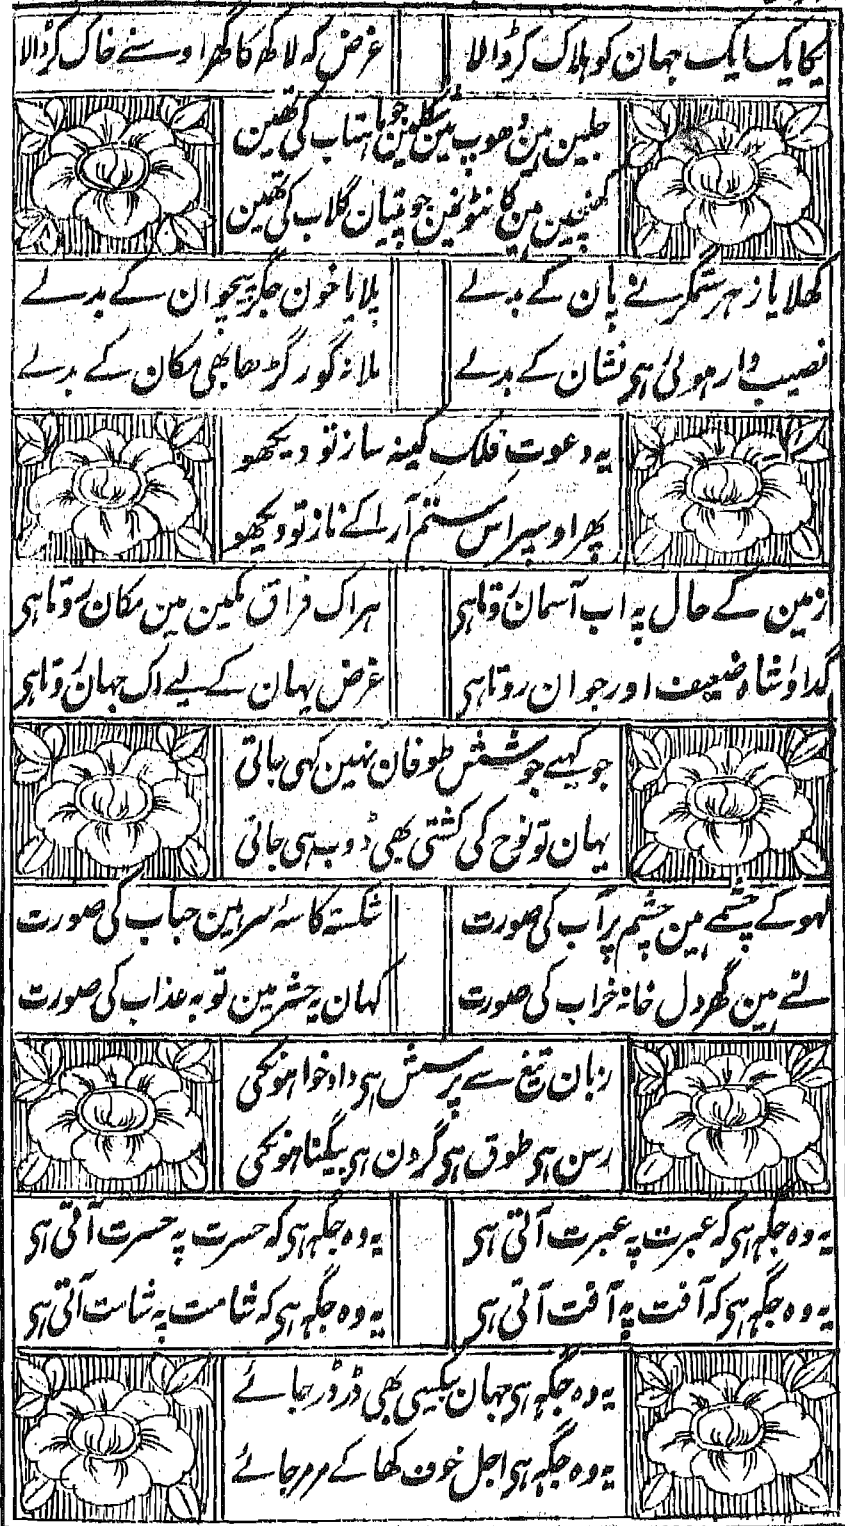 یکایک ایک جہان کو ہلاک کر ڈالا غرض کہ لاکھ کا گھر اوسنے خاک کر ڈالا
جلین ہین دھوپ مین شکلین جو ماہتاب کی تھین
کھنچین ہین کانٹونمین جو پتیان گلاب کی تھین
کھلایا زہر ستمگر نے پان کے بدلے پلایا خون جگر پیچوان کے بدلے
نصیب دار ہوئی ہی نشان کے بدلے ملا نہ گور گڑھا بھی مکان کے بدلے
یہ دعوت فلک کینہ ساز تو دیکھو
پھر اوسپر اس ستم آرا کے ناز تو دیکھو
زمین کے حال پہ اب آسمان روتا ہی ہر اک فراق مکین مین مکان روتا ہی
گدا و شاہ ضعیف اور جوان روتا ہی غرض یہان کے لیے اک جہان روتا ہی
جو کہیے جوشش طوفان نہین کہی جاتی
یہان تو نوح کی کشتی بھی ڈوب ہی جاتی
لہو کے چشمے ہین چشم پر آب کی صورت شکستہ کاسۂ سر ہین حباب کی صورت
لٹے ہین گھر دل خانہ خراب کی صورت کہان یہ حشر مین توبہ عذاب کی صورت
زبان تیغ سے پرسش ہی داد خواہونکی
رسن ہی طوق ہی گردن ہی بیگناہونکی
یہ وہ جگہ ہی کہ عبرت پہ عبرت آتی ہی یہ وہ جگہ ہی کہ حسرت پہ حسرت آتی ہی
یہ وہ جگہ ہی کہ آفت پہ آفت آتی ہی یہ وہ جگہ ہی کہ شامت پہ شامت آتی ہی
یہ وہ جگہ ہی جہان بیکسی بھی ڈر ڈر جائے
یہ وہ جگہ ہی اجل خوف کھا کے مر مر جائے